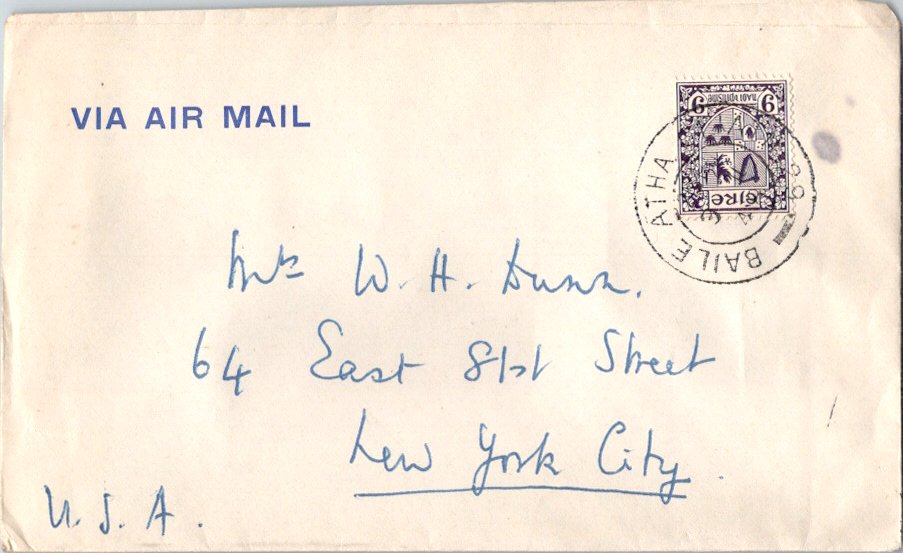 VIA AIR MAIL
9 naoi bpingne 9
éire
BAILE ÁTHA
Mrs W. H. Dunn.
64 East 81st Street
New York City.
U.S.A.